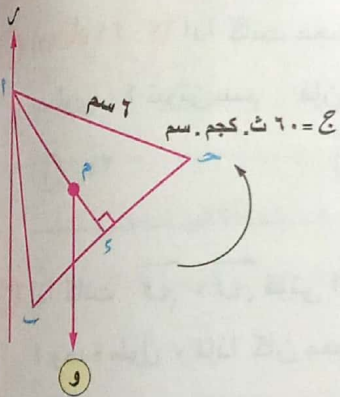 س
ا
٦ سم
ج = ٦٠ ث. كجم. سم
م
حـ
ء
ب
و